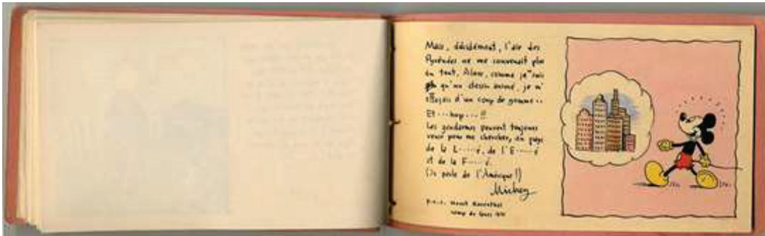 Mais, décidément, l'air des
Pyrénées ne me convenait plus
du tout. Alors, comme je ne suis
qu'un dessin animé, je m'
effaçais d'un coup de gomme...
Et... hop...!!
Les gendarmes peuvent toujours
venir pour me chercher, au pays
de la L.....é, de l'E.....é
et de la F.....é.
(Je parle de l'Amérique!)
Mickey
Horst Rosenthal
Camp de Gurs